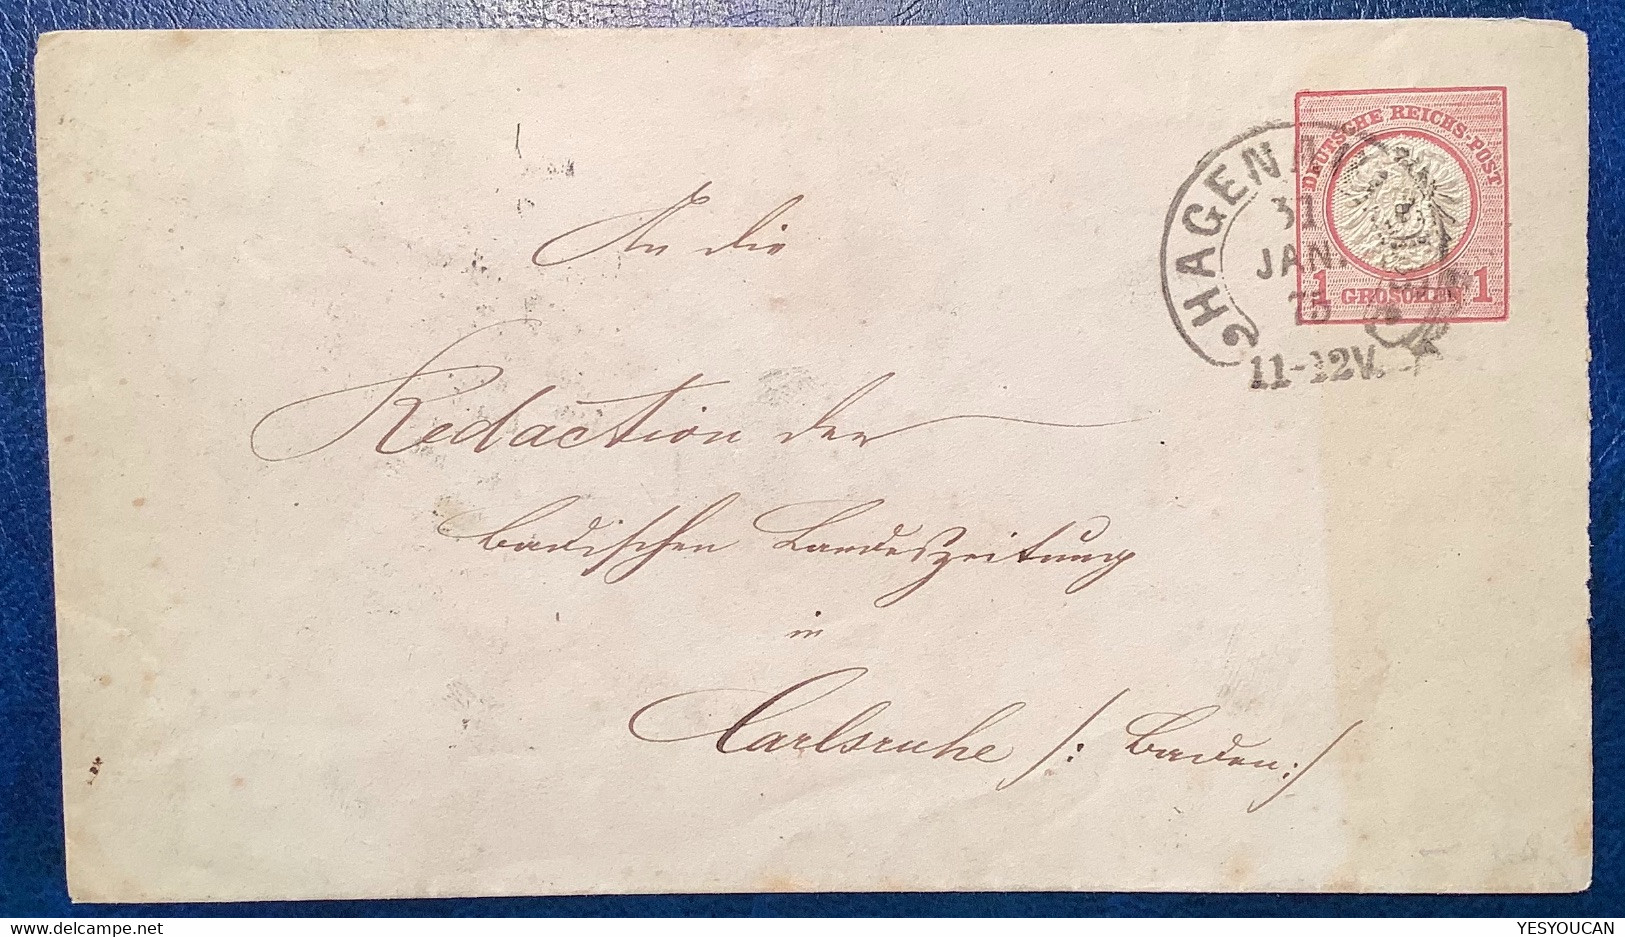 DEUTSCHE REICHS-POST
1 GROSCHEN 1
HAGEN
31
JAN.
75
11-12V.
An die
Redaction der
Badischen Landeszeitung
in
Carlsruhe /: Baden :/
YESYOUCAN